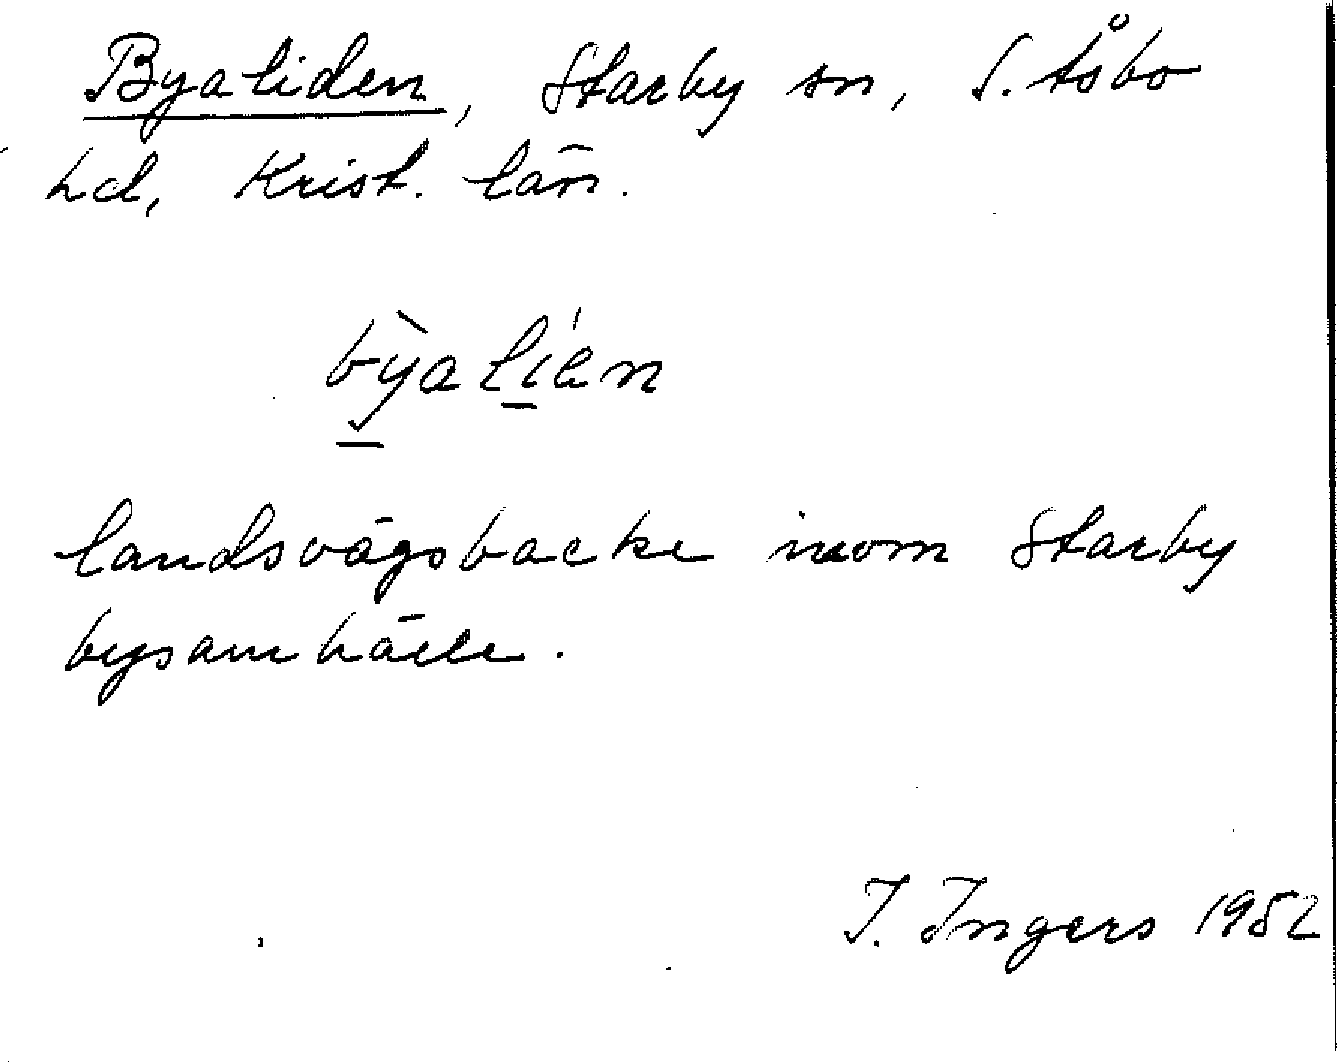 Byaliden, Starby sn, S. Åsbo
hd, Krist. län.
bỳalíen
landsvägsbacke inom Starby
bysamhälle.
I. Ingers 1952